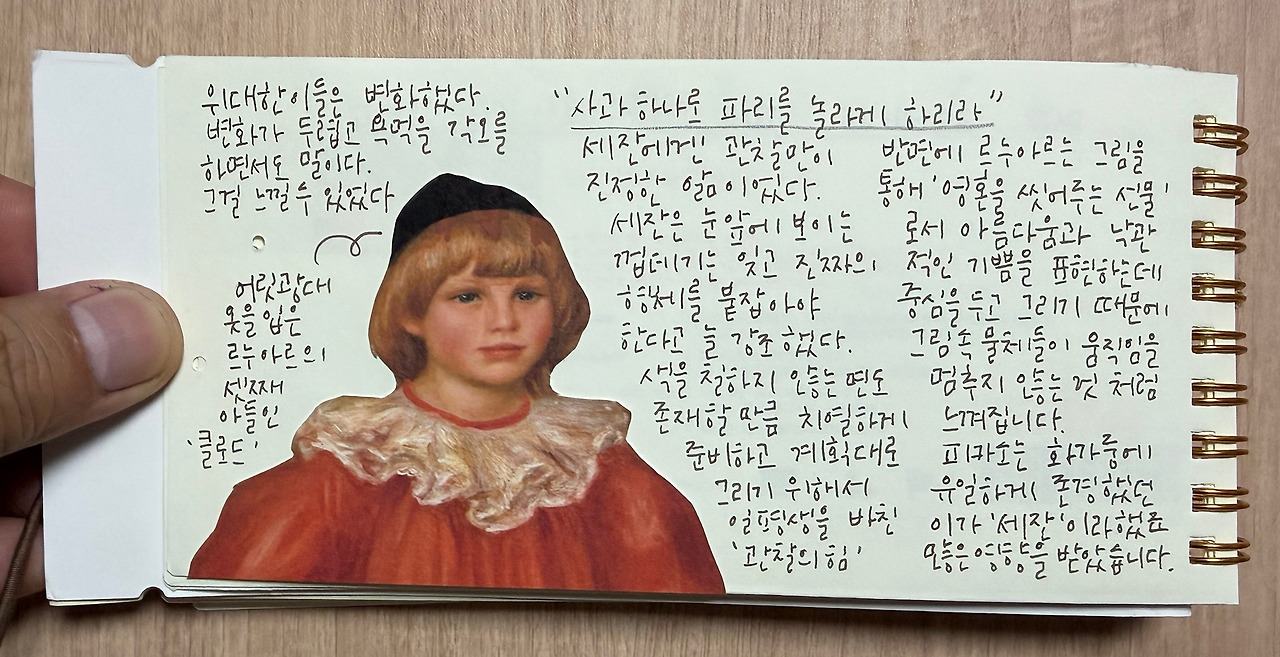 위대한 이들은 변화했다.
변화가 두렵고 욕먹을 각오를
하면서도 말이다.
그걸 느낄 수 있었다
어릿광대
옷을 입은
르누아르의
셋째
아들인
'클로드'
"사과 하나로 파리를 놀라게 하리라"
세잔에겐 관찰만이
진정한 앎이었다.
세잔은 눈앞에 보이는
껍데기는 잊고 진짜의
형체를 붙잡아야
한다고 늘 강조했다.
색을 칠하지 않는 면도
존재할 만큼 치열하게
준비하고 계획대로
그리기 위해서
일평생을 바친
'관찰의 힘'
반면에 르누아르는 그림을
통해 '영혼을 씻어주는 선물'
로서 아름다움과 낙관
적인 기쁨을 표현하는데
중심을 두고 그리기 때문에
그림 속 물체들이 움직임을
멈추지 않는 것 처럼
느껴집니다.
피카소는 화가 중에
유일하게 존경했던
이가 '세잔'이라했죠
많은 영향을 받았습니다.